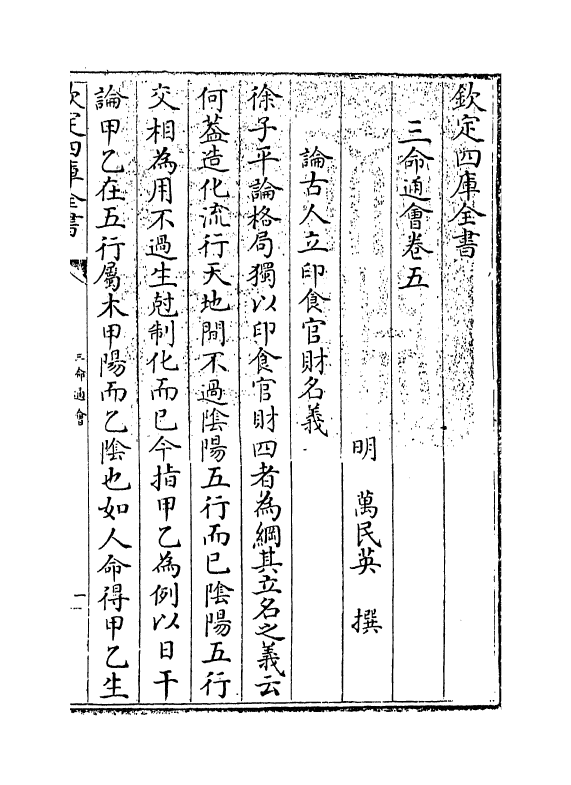 欽定四庫全書
三命通會卷五
明　萬民英　撰
論古人立印食官財名義
徐子平論格局獨以印食官財四者為綱其立名之義云
何葢造化流行天地間不過陰陽五行而已陰陽五行
交相為用不過生尅制化而已今指甲乙為例以日干
論甲乙在五行屬木甲陽而乙陰也如人命得甲乙生
欽定四庫全書
三命通會
一